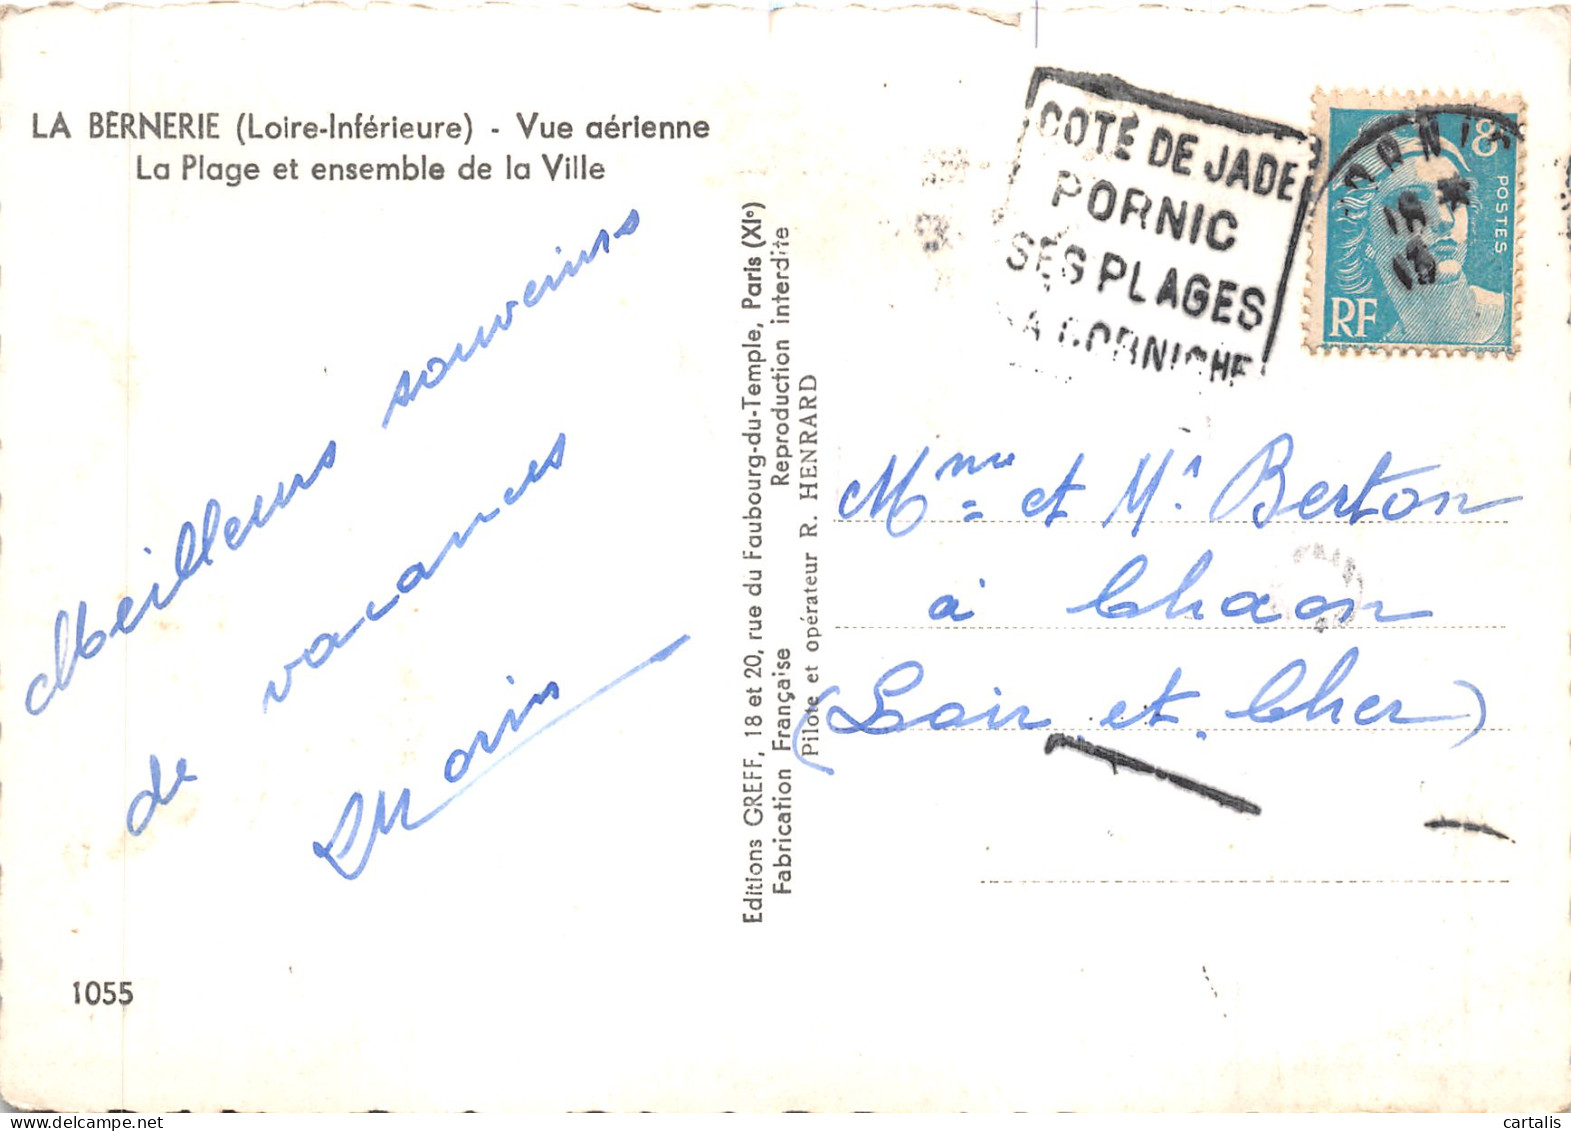 LA BERNERIE (Loire-Inférieure) - Vue aérienne
La Plage et ensemble de la Ville
Meilleurs souvenirs
de vacances
Morin
1055
Editions GREFF, 18 et 20, rue du Faubourg-du-Temple, Paris (XIe)
Fabrication Française Reproduction interdite
Pilote et opérateur R. HENRARD
COTE DE JADE
PORNIC
SES PLAGES
SA CORNICHE
PORNIC
8
POSTES
RF
Mme et Mr Berton
à Chaon
(Loir et Cher)
cartalis
www.delcampe.net